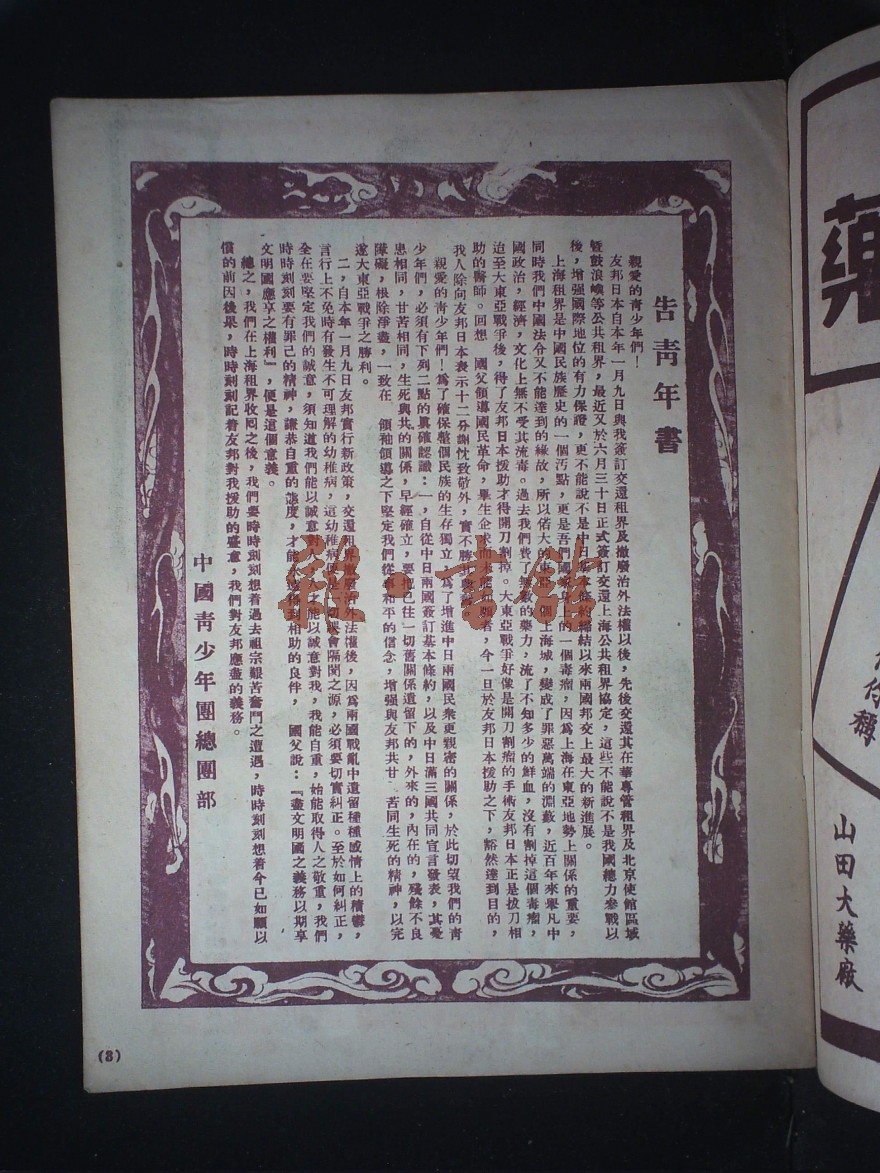 告青年書
親愛的青少年們！
友邦日本自本年一月九日與我簽訂交還租界及撤廢治外法權以後，先後交還其在華專管租界及北京使館區域
暨鼓浪嶼等公共租界，最近又於六月三十日正式簽訂交還上海公共租界協定，這些不能說不是我國總力參戰以
後，增强國際地位的有力保證，更不能說不是中日基本條約締結以來兩國邦交上最大的新進展。
上海租界是中國民族歷史的一個汚點，更是吾們國家身上的一個毒瘤，因爲上海在東亞地勢上關係的重要，
同時我們中國法令又不能達到的緣故，所以偌大的東亞一個上海城，變成了罪惡萬端的淵藪，近百年來舉凡中
國政治，經濟，文化上無不受其流毒。過去我們費了無數的藥力，流了不知多少的鮮血，沒有割掉這個毒瘤，
迨至大東亞戰爭後，得了友邦日本援助才得開刀割掉。大東亞戰爭好像是開刀割瘤的手術友邦日本正是拔刀相
助的醫師。回想　國父領導國民革命，畢生企求而未能如願者，今一旦於友邦日本援助之下，豁然達到目的，
我人除向友邦日本表示十二分謝忱致敬外，實不勝
親愛的靑少年們！爲了確保整個民族的生存獨立，爲了增進中日兩國民衆更親密的關係，於此切望我們的靑
少年們，必須有下列二點的眞確認識：一，自從中日兩國簽訂基本條約，以及中日滿三國共同宣言發表，其憂
患相同，甘苦相同，生死與共的關係，早經確立，要把已往一切舊關係遺留下的，外來的，內在的，殘餘不良
障礙，根除淨盡，一致在　領袖領導之下堅定我們從事和平的信念，增强與友邦共甘　苦同生死的精神，以完
遂大東亞戰爭之勝利。
二，自本年一月九日友邦實行新政策，交還租界撤廢治外法權後，因爲兩國戰亂中遺留種種感情上的積鬱，
言行上不免時有發生不可理解的幼稚病，這幼稚病便是一切誤會隔閡之源，必須要切實糾正。至於如何糾正，
全在要堅定我們的誠意，須知道我們能以誠意對人，人才能以誠意對我，我能自重，始能取得人之敬重，我們
時時刻刻要有罪己的精神，謙恭自重的態度，才能永遠得到相助的良伴，　國父說：『盡文明國之義務以期享
文明國應享之權利』，便是這個意義。
總之，我們在上海租界收囘之後，我們要時時刻刻想着過去祖宗艱苦奮鬥之遭遇，時時刻刻想着今已如願以
償的前因後果，時時刻刻記着友邦對我援助的盛意，我們對友邦應盡的義務。
中國靑少年團總團部
(3)
藥
山田大藥廠
雜·書館